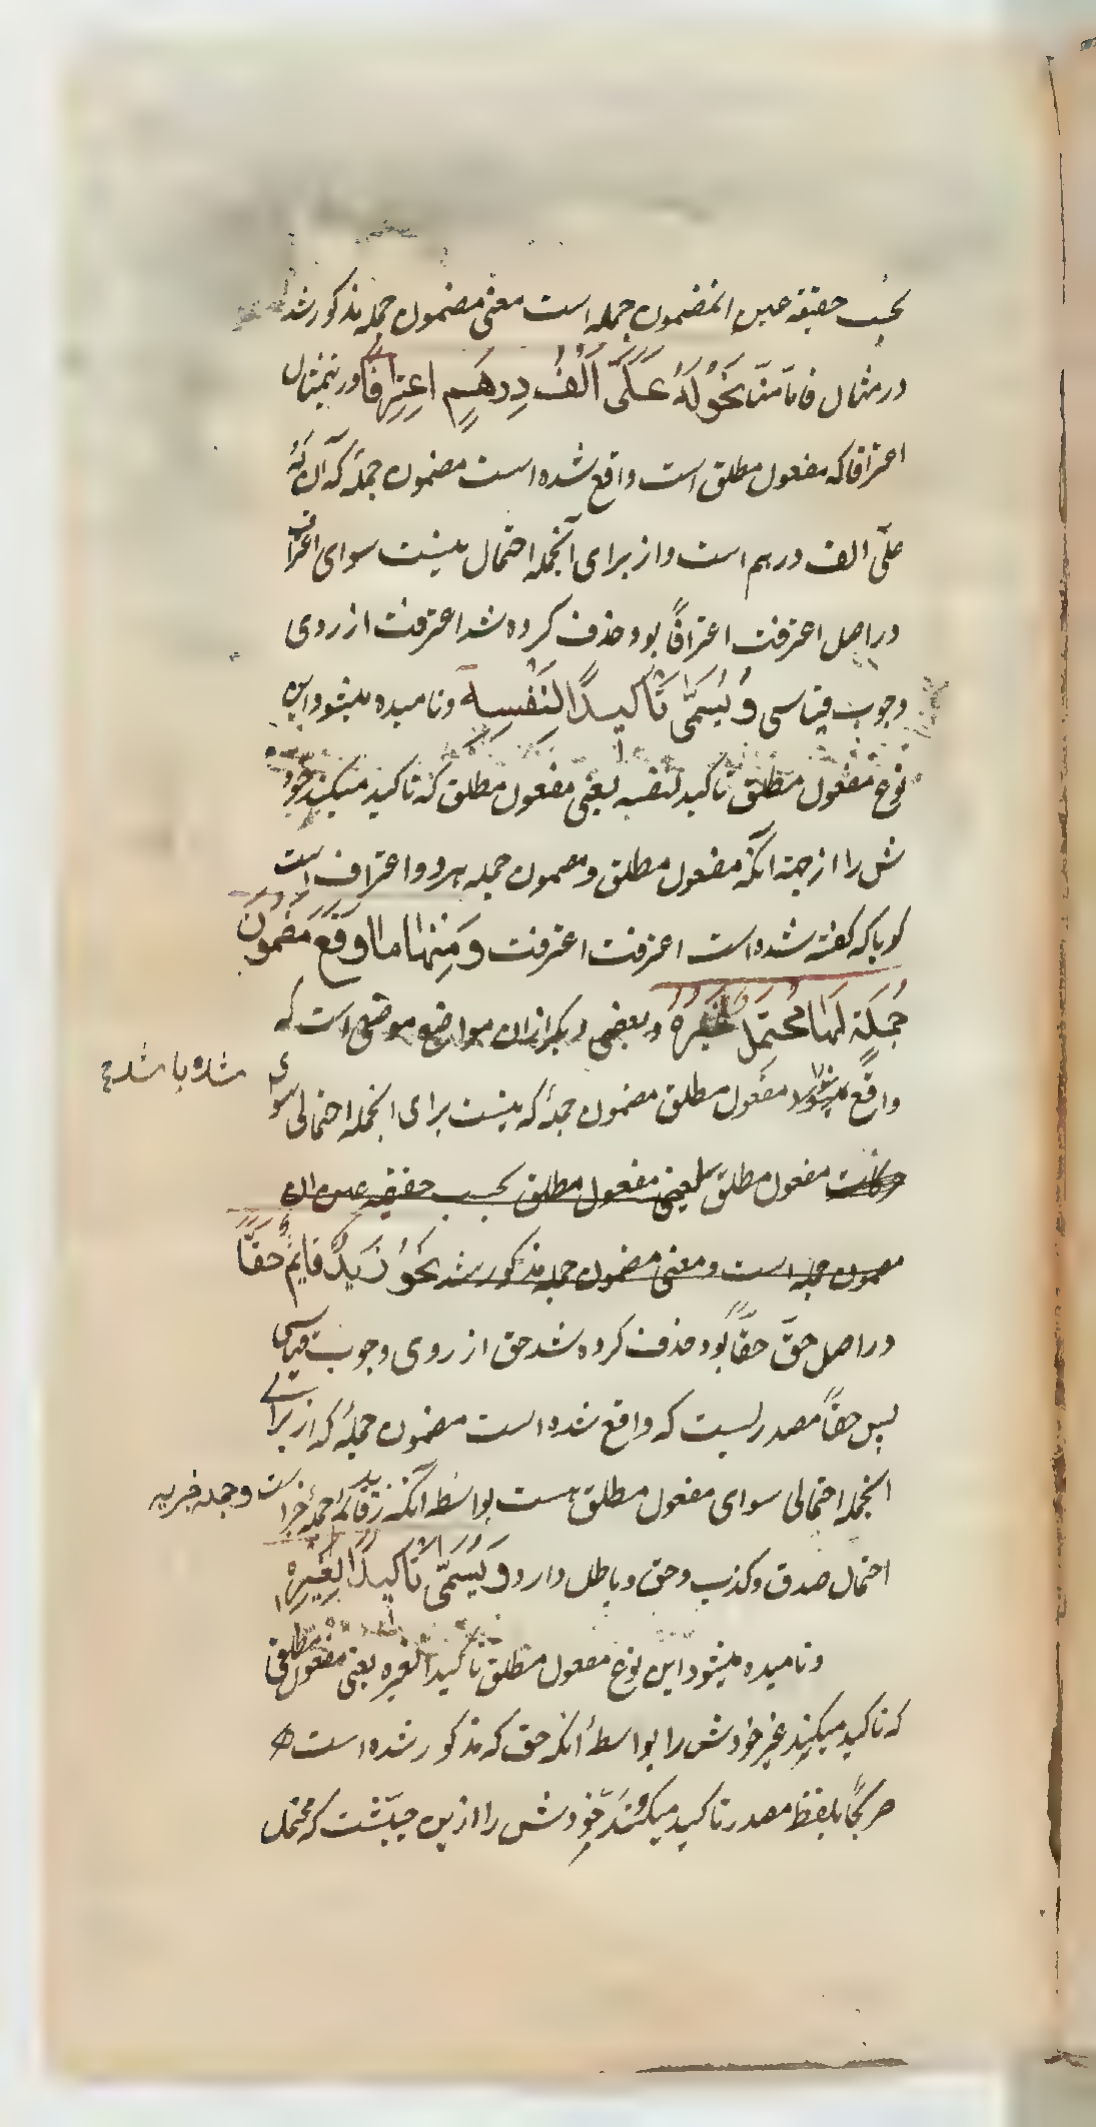 بحسب حقیقة عین المضمون جمله است معنی مضمون جمله مذکور شد
در مثال فاما منّا نَحْوُ لَهُ عَلَیَّ اَلْفُ دِرْهَمٍ اعِتِرافًا در ینمثال
اعترافا که مفعول مطلق است واقع شده است مضمون جملهٔ که آن لَهُ
علیّ الف درهم است و از برای آنجمله احتمال نیست سوای اعتراف
در اصل اعترفت اعترافًا بود حذف کرده شد اعترفت از روی
وجوب قیاسی وَ یُسَمّٰی تَاکیدًا لِنَفْسِهِ و نامیده میشود این
نوع مفعول مطلق تاکید لنفسه یعنی مفعول مطلق که تاکید میکند خود
ش را از جهة انکه مفعول مطلق و مضمون جمله هر دو اعتراف است
کویا که کفته شده است اعترفت اعترفت وَ مِنْها ما وَقَعَ مَضْمُونَ
جُمْلَةٍ لَهَا مُحْتَمَلٌ غَیْرُهُ و بعضی دیکر از ان مواضع موضعی است که
واقع مفعول مطلق مضمون جملهٔ که نیست برای انجمله احتمالی سوای
شده باشد
مفعول مطلق یعنی مفعول مطلق بحسب حقیقه عین ان
مضمون جمله است و معنی مضمون جمله مذکور شد نَحْوُ زَیْدٌ قایمٌ حَقًّا
در اصل حقّ حقّاً بود حذف کرده شد حق از روی وجوب قیاسی
پس حقاً مصدریست که واقع شده است مضمون جملهٔ که از برای
انجمله احتمالی سوای مفعول مطلق هست بواسطه آنکه زید قائم جملهٔ خبر است و جمله خبریه
احتمال صدق و کذب و حق و باطل دارد وَ یُسَمّٰی تَاکیدًا لِغَیْرِهِ
و نامیده میشود این نوع مفعول مطلق تاکیدا لغیره یعنی مفعول مطلقی
که تاکید میکند غیر خودش را بواسطهٔ انکه حق که مذکور شده است
بلفظ مصدر تاکید میکند خودش را ازین حیثیت که محتمل